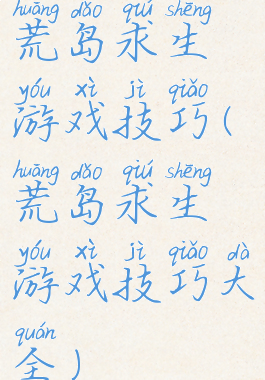 huāng dǎo qiú shēng
荒岛求生
yóu xì jì qiǎo
游戏技巧(
huāng dǎo qiú shēng
荒岛求生
yóu xì jì qiǎo dà
游戏技巧大
quán
全)